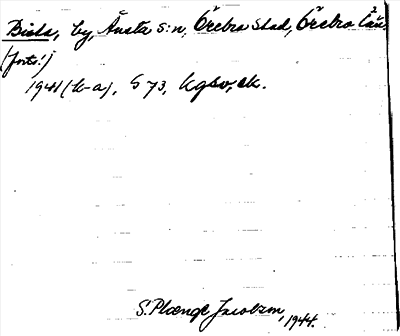 Bista, by, Ånsta s:n, Örebro stad, Örebro län.
(forts.)
1941 (k-a), S 73, kgsv, ek.
S. Plænge Jacobson, 1944.